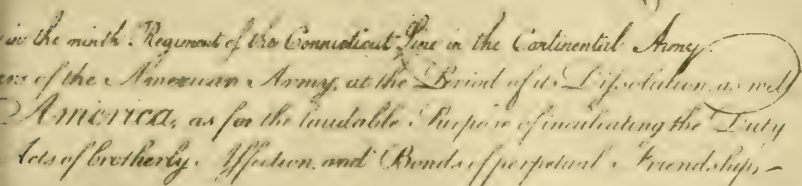 in the ninth Regiment of the Connecticut Line in the Continental Army
of the American Army, at the Period of its Dissolution, as well
America, as for the laudable Purpose of inculcating the Duty
Acts of brotherly Affection, and Bonds of perpetual Friendship,